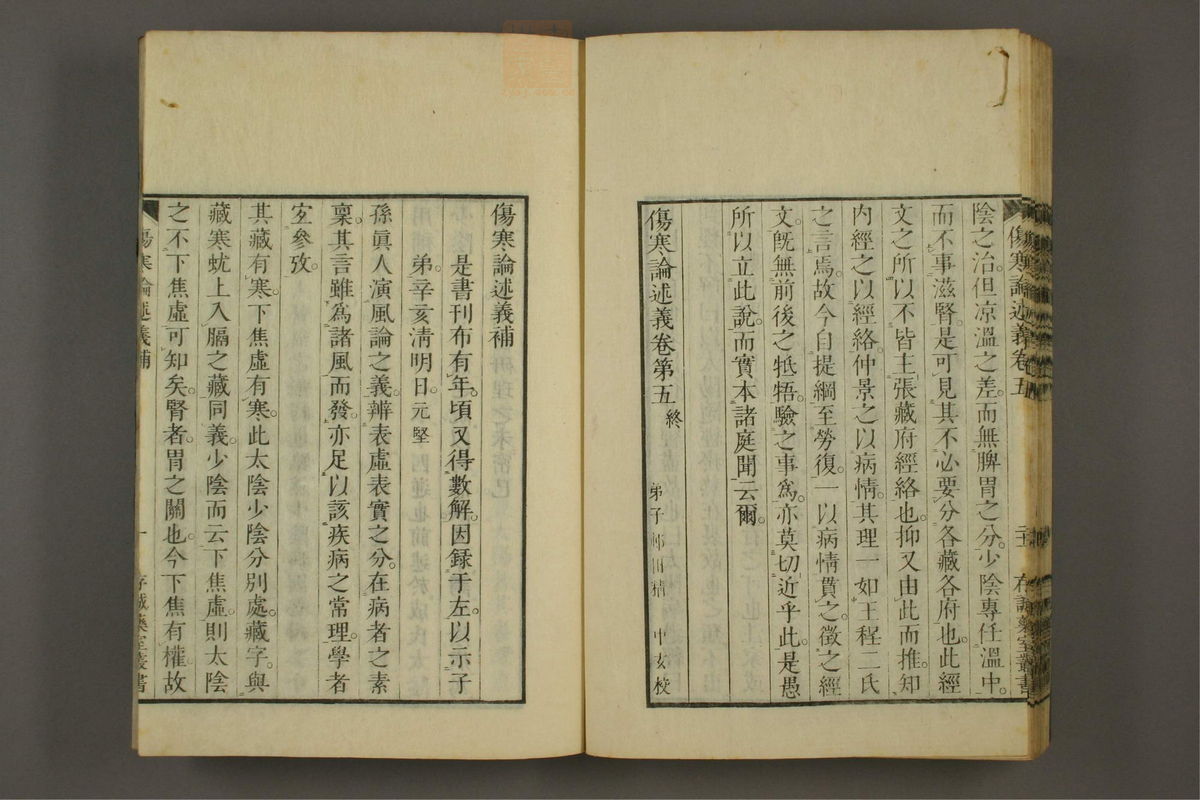 傷寒論述義卷五
存誠藥室叢書
陰之治。但凉溫之差。而無脾胃之分。少陰專任溫中。
而不事滋腎。是可見其不必要分各藏各府也。此經
文之所以不皆主張藏府經絡也。抑又由此而推。知
內經之以經絡。仲景之以病情。其理一如王程二氏
之言焉。故今自提綱至勞復。一以病情貫之。徵之經
文。既無前後之牴牾。驗之事爲。亦莫切近乎此。是愚
所以立此說。而實本諸庭聞云爾。
傷寒論述義卷第五 終 弟子 校
傷寒論述義補
是書刊布有年。頃又得數解。因録于左。以示子
弟。辛亥淸明日。元堅
孫眞人演風論之義。辨表虛表實之分。在病者之素
稟。其言雖爲諸風而發。亦足以該疾病之常理。學者
宜參攷。
其藏有寒。下焦虛有寒。此太陰少陰分別處。藏字。與
藏寒蚘上入膈之藏同義。少陰而云下焦虛。則太陰
之不下焦虛可知矣。腎者。胃之關也。今下焦有權。故
傷寒論述義補 一 存誠藥室叢書